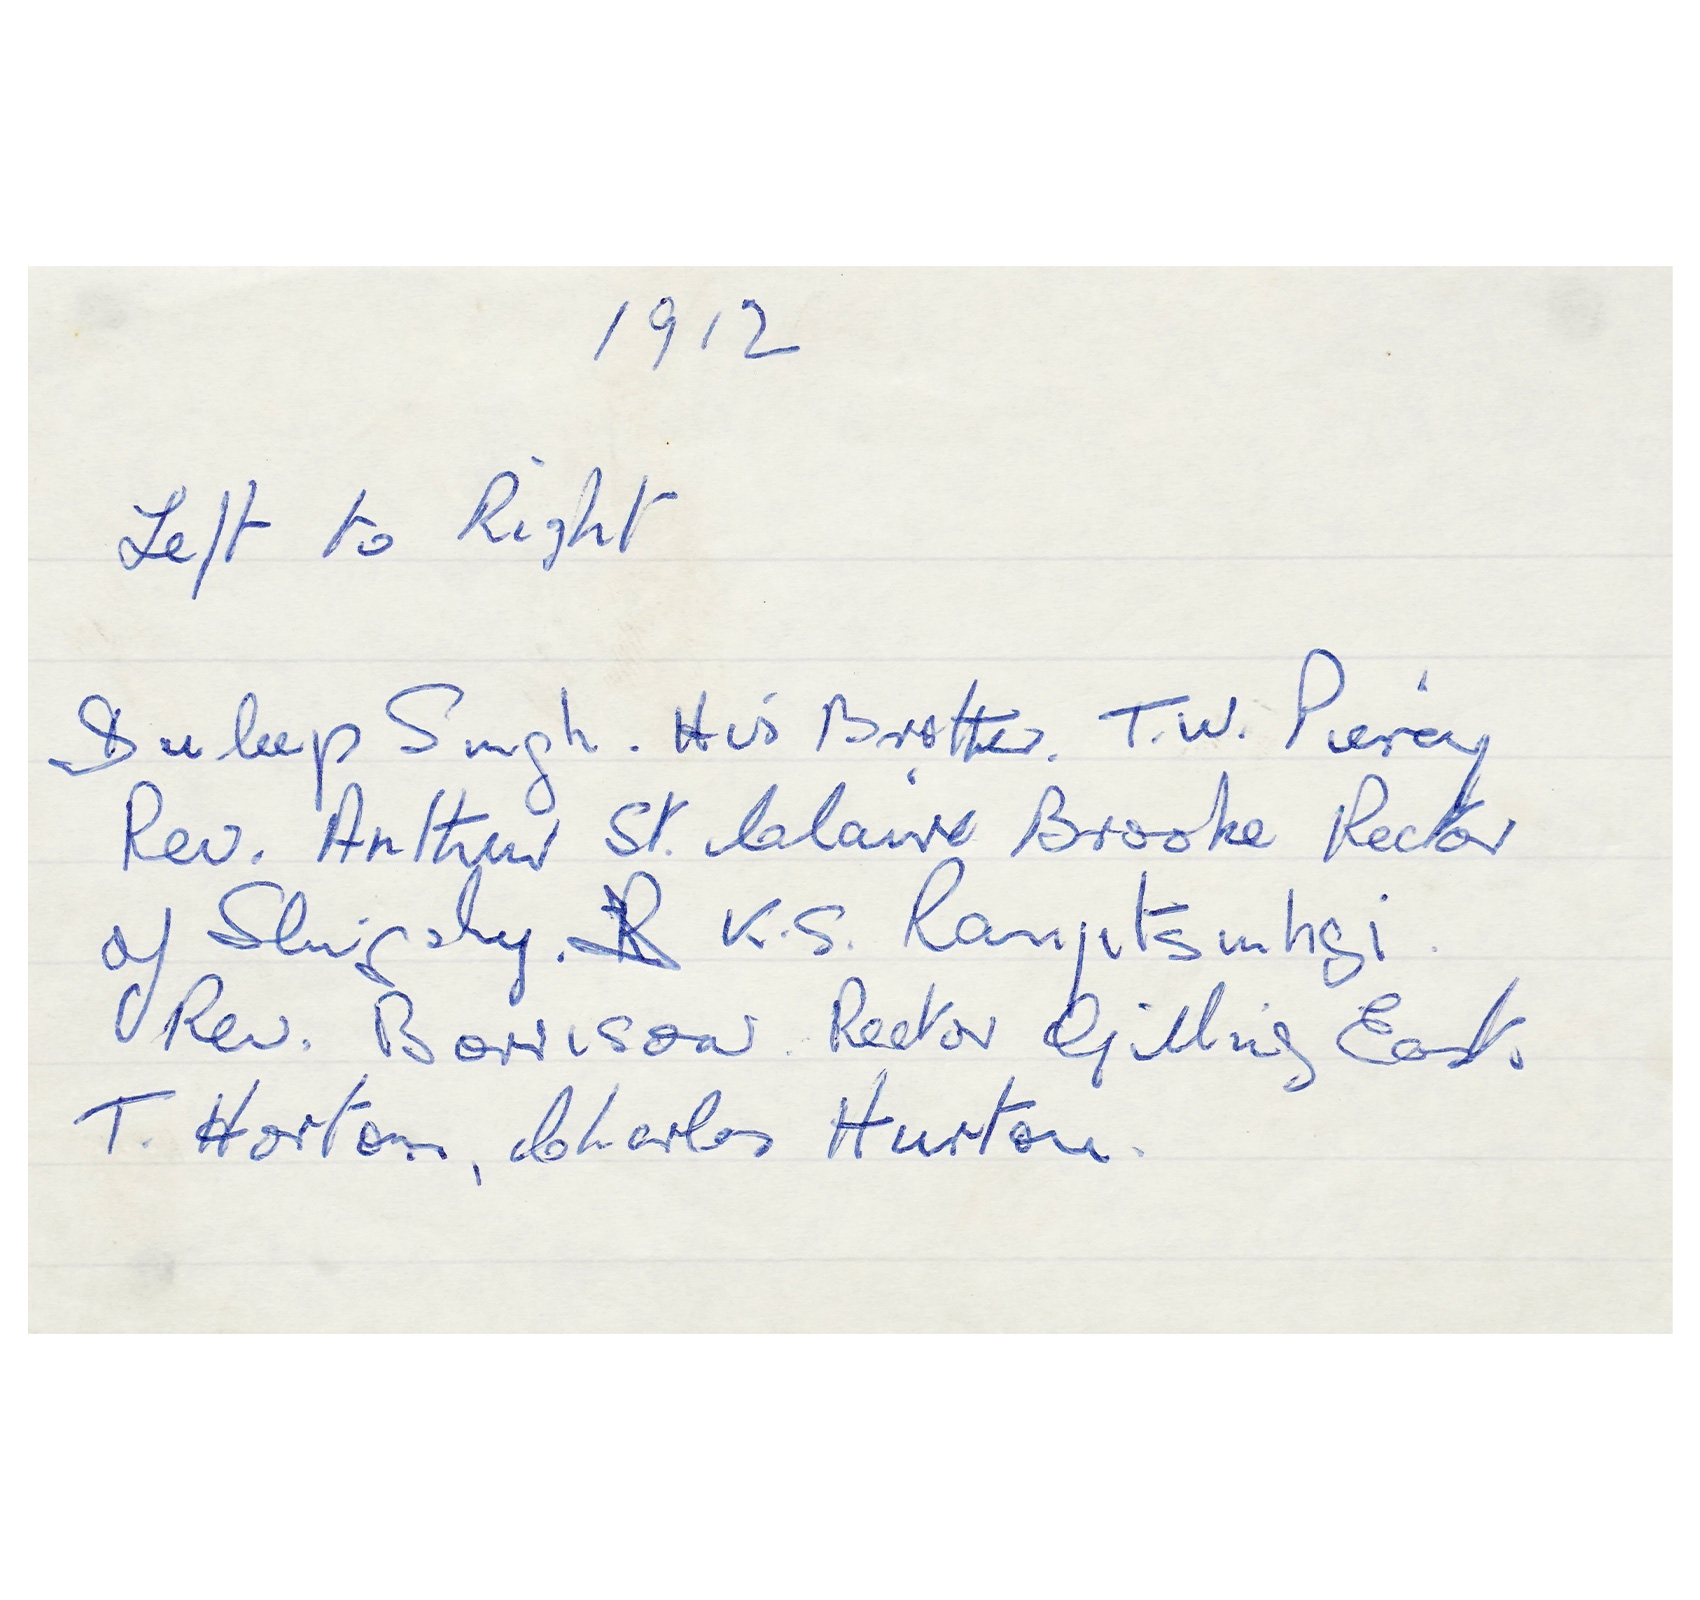 1912
Left to Right
Duleep Singh. His Brother. T.W. Piercy
Rev. Arthur St. Claire Brooke Rector
of Slingsby. K.S. Ranjitsinhgi.
Rev. Borrison. Rector Gilling East.
T. Horton, Charles Hurton.